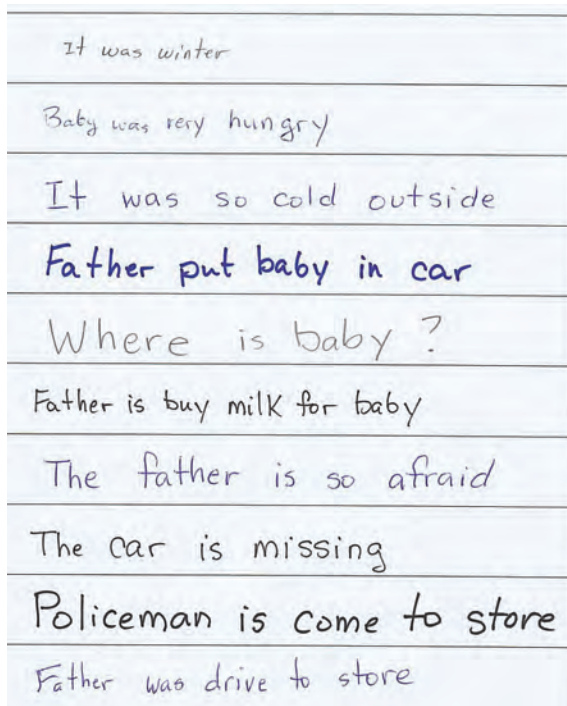 It was winter
Baby was very hungry
It was so cold outside
Father put baby in car
Where is baby?
Father is buy milk for baby
The father is so afraid
The car is missing
Policeman is come to store
Father was drive to store